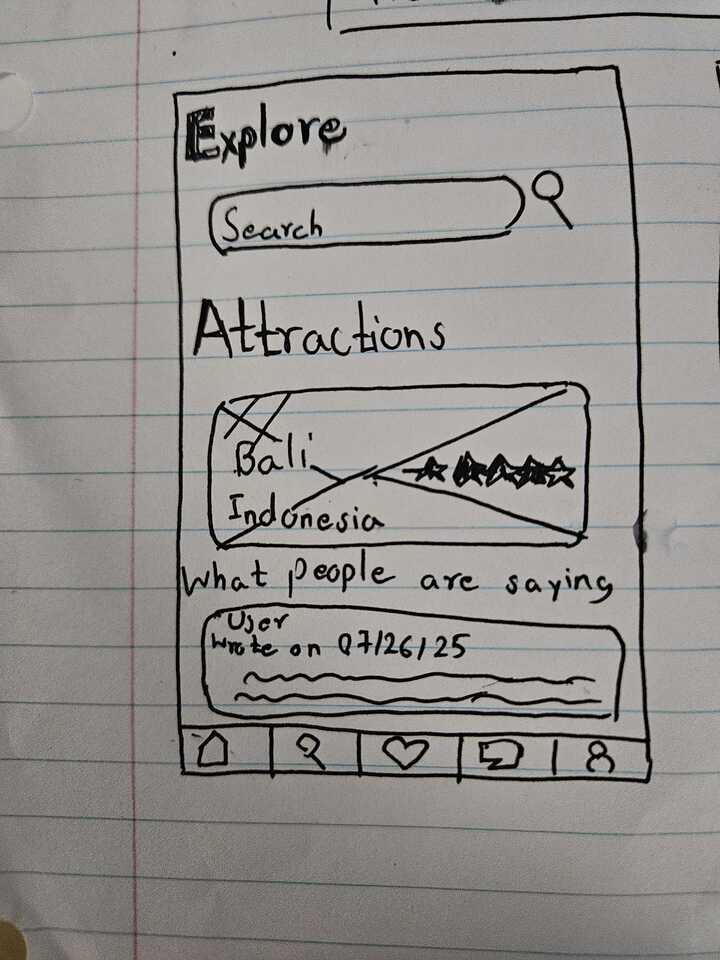 Explore
Search
Attractions
Bali
Indonesia
What people are saying
User
Wrote on 07/26/25